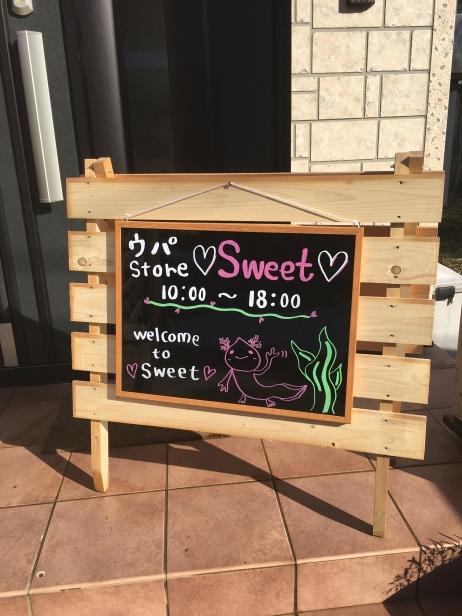 ウパ
Store ♡Sweet♡
10:00 ~ 18:00
welcome
to
♡Sweet♡